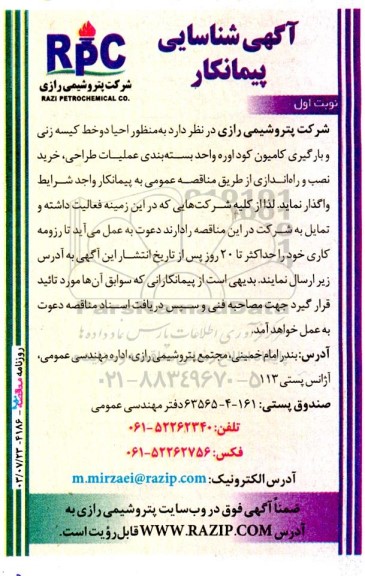 آگهی شناسایی
پیمانکار
RPC
شرکت پتروشیمی رازی
RAZI PETROCHEMICAL CO.
نوبت اول
شرکت پتروشیمی رازی در نظر دارد به‌منظور احیا دو خط کیسه زنی
و بارگیری کامیون کود اوره واحد بسته‌بندی عملیات طراحی، خرید
نصب و راه‌اندازی از طریق مناقصه عمومی به پیمانکار واجد شرایط
واگذار نماید. لذا از کلیه شرکت‌هایی که در این زمینه فعالیت داشته و
تمایل به شرکت در این مناقصه را دارند دعوت به عمل می‌آید تا رزومه
کاری خود را حداکثر تا ۲۰ روز پس از تاریخ انتشار این آگهی به آدرس
زیر ارسال نمایند. بدیهی است از پیمانکارانی که سوابق آن‌ها مورد تائید
قرار گیرد جهت مصاحبه فنی و سپس دریافت اسناد مناقصه دعوت
به عمل خواهد آمد.
آدرس: بندر امام خمینی، مجتمع پتروشیمی رازی، اداره مهندسی عمومی،
آژانس پستی ۱۱۳
صندوق پستی: ۱۶۱-۴-۶۳۵۶۵ دفتر مهندسی عمومی
تلفن: ۵۲۲۶۲۳۴۰-۰۶۱
فکس: ۵۲۲۶۲۷۵۶-۰۶۱
آدرس الکترونیک: m.mirzaei@razip.com
ضمناً آگهی فوق در وب‌سایت پتروشیمی رازی به
آدرس WWW.RAZIP.COM قابل رؤیت است.
روزنامه مناقصه - ۴۱۸۶ - ۰۳/۰۷/۲۳
۰۲۱-۸۸۳۴۹۶۷۰-۵